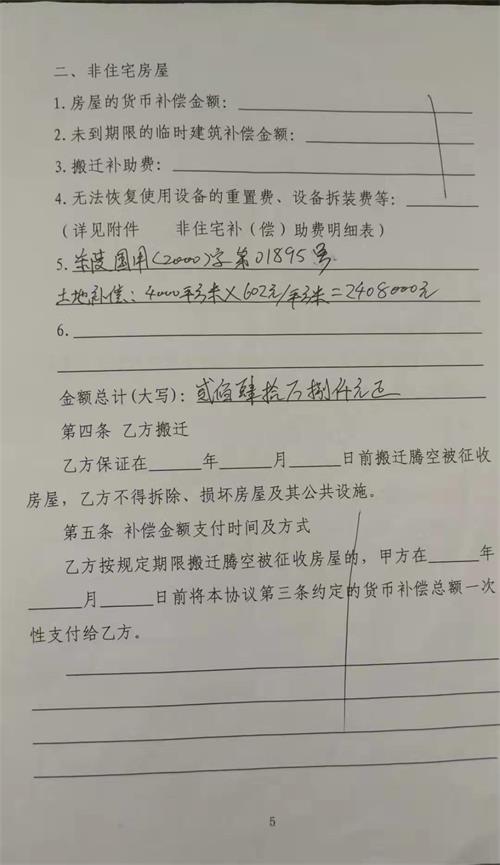 二、非住宅房屋
1.房屋的货币补偿金额：
2.未到期限的临时建筑补偿金额：
3.搬迁补助费：
4.无法恢复使用设备的重置费、设备拆装费等：
（详见附件 非住宅补（偿）助费明细表）
5.乐陵国用(2000)字第01895号
土地补偿：4000平方米×602元/平方米=2408000元
6.
金额总计(大写)：贰佰肆拾万捌仟元正
第四条 乙方搬迁
乙方保证在______年______月______日前搬迁腾空被征收
房屋，乙方不得拆除、损坏房屋及其公共设施。
第五条 补偿金额支付时间及方式
乙方按规定期限搬迁腾空被征收房屋的，甲方在______年
______月______日前将本协议第三条约定的货币补偿总额一次
性支付给乙方。
5